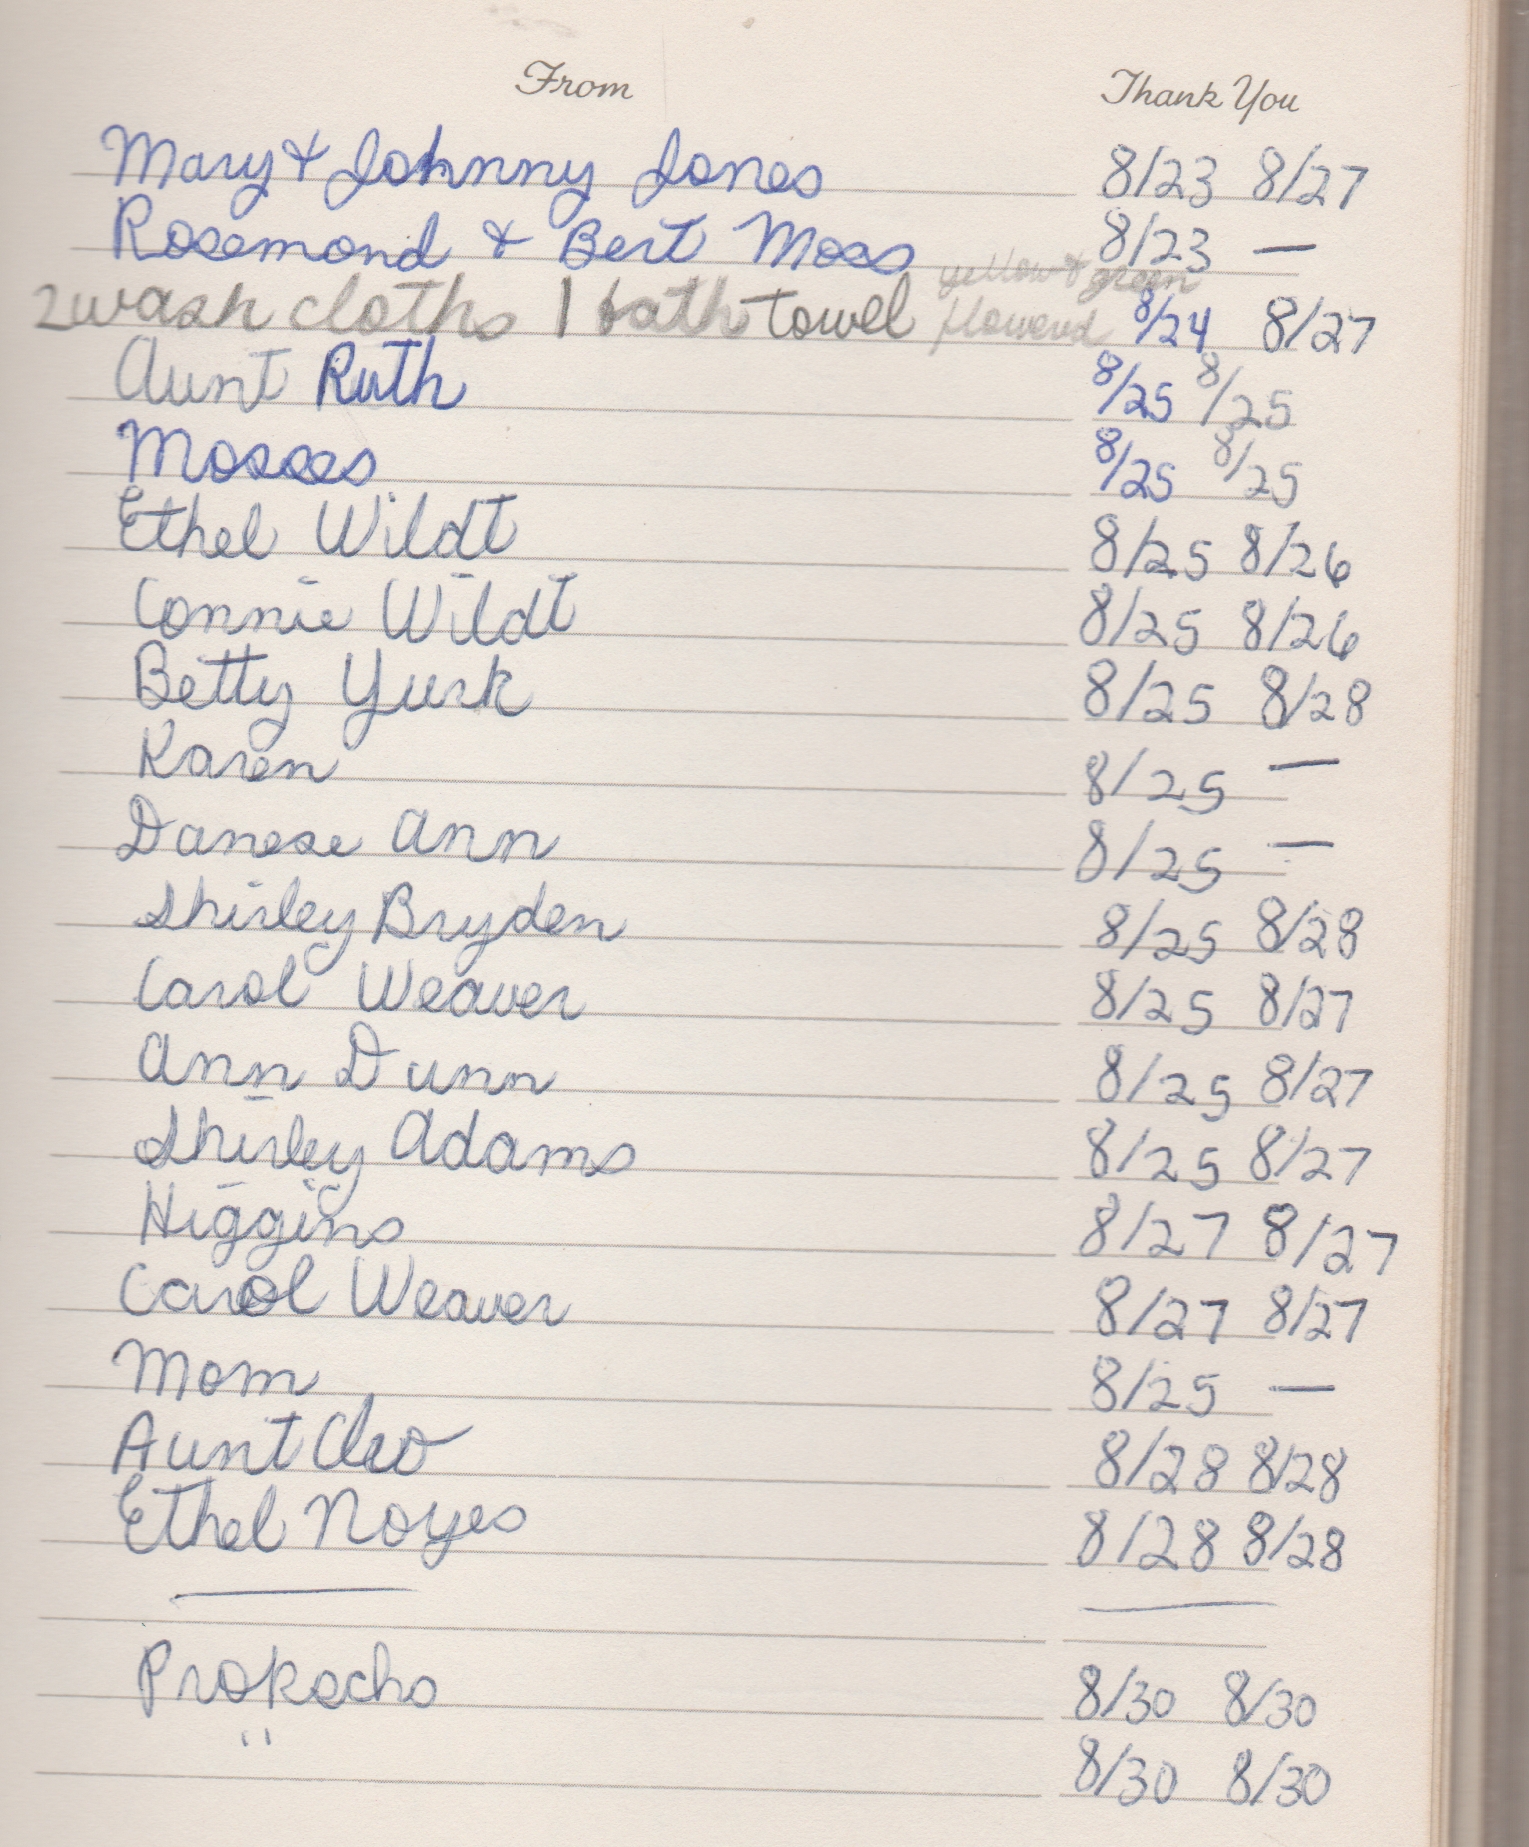 From Thank You
Mary & Johnny Jones 8/23 8/27
Rosemond & Bert Moss 8/23 —
yellow & green
2 wash cloths 1 bath towel flowered 8/24 8/27
Aunt Ruth 8/25 8/25
Mosses 8/25 8/25
Ethel Wildt 8/25 8/26
Connie Wildt 8/25 8/26
Betty Yurk 8/25 8/28
Karen 8/25 —
Danese Ann 8/25 —
Shirley Bryden 8/25 8/28
Carol Weaver 8/25 8/27
Ann Dunn 8/25 8/27
Shirley Adams 8/25 8/27
Higgins 8/27 8/27
Carol Weaver 8/27 8/27
Mom 8/25 —
Aunt Cleo 8/28 8/28
Ethel Noyes 8/28 8/28
Prokschs 8/30 8/30
" 8/30 8/30